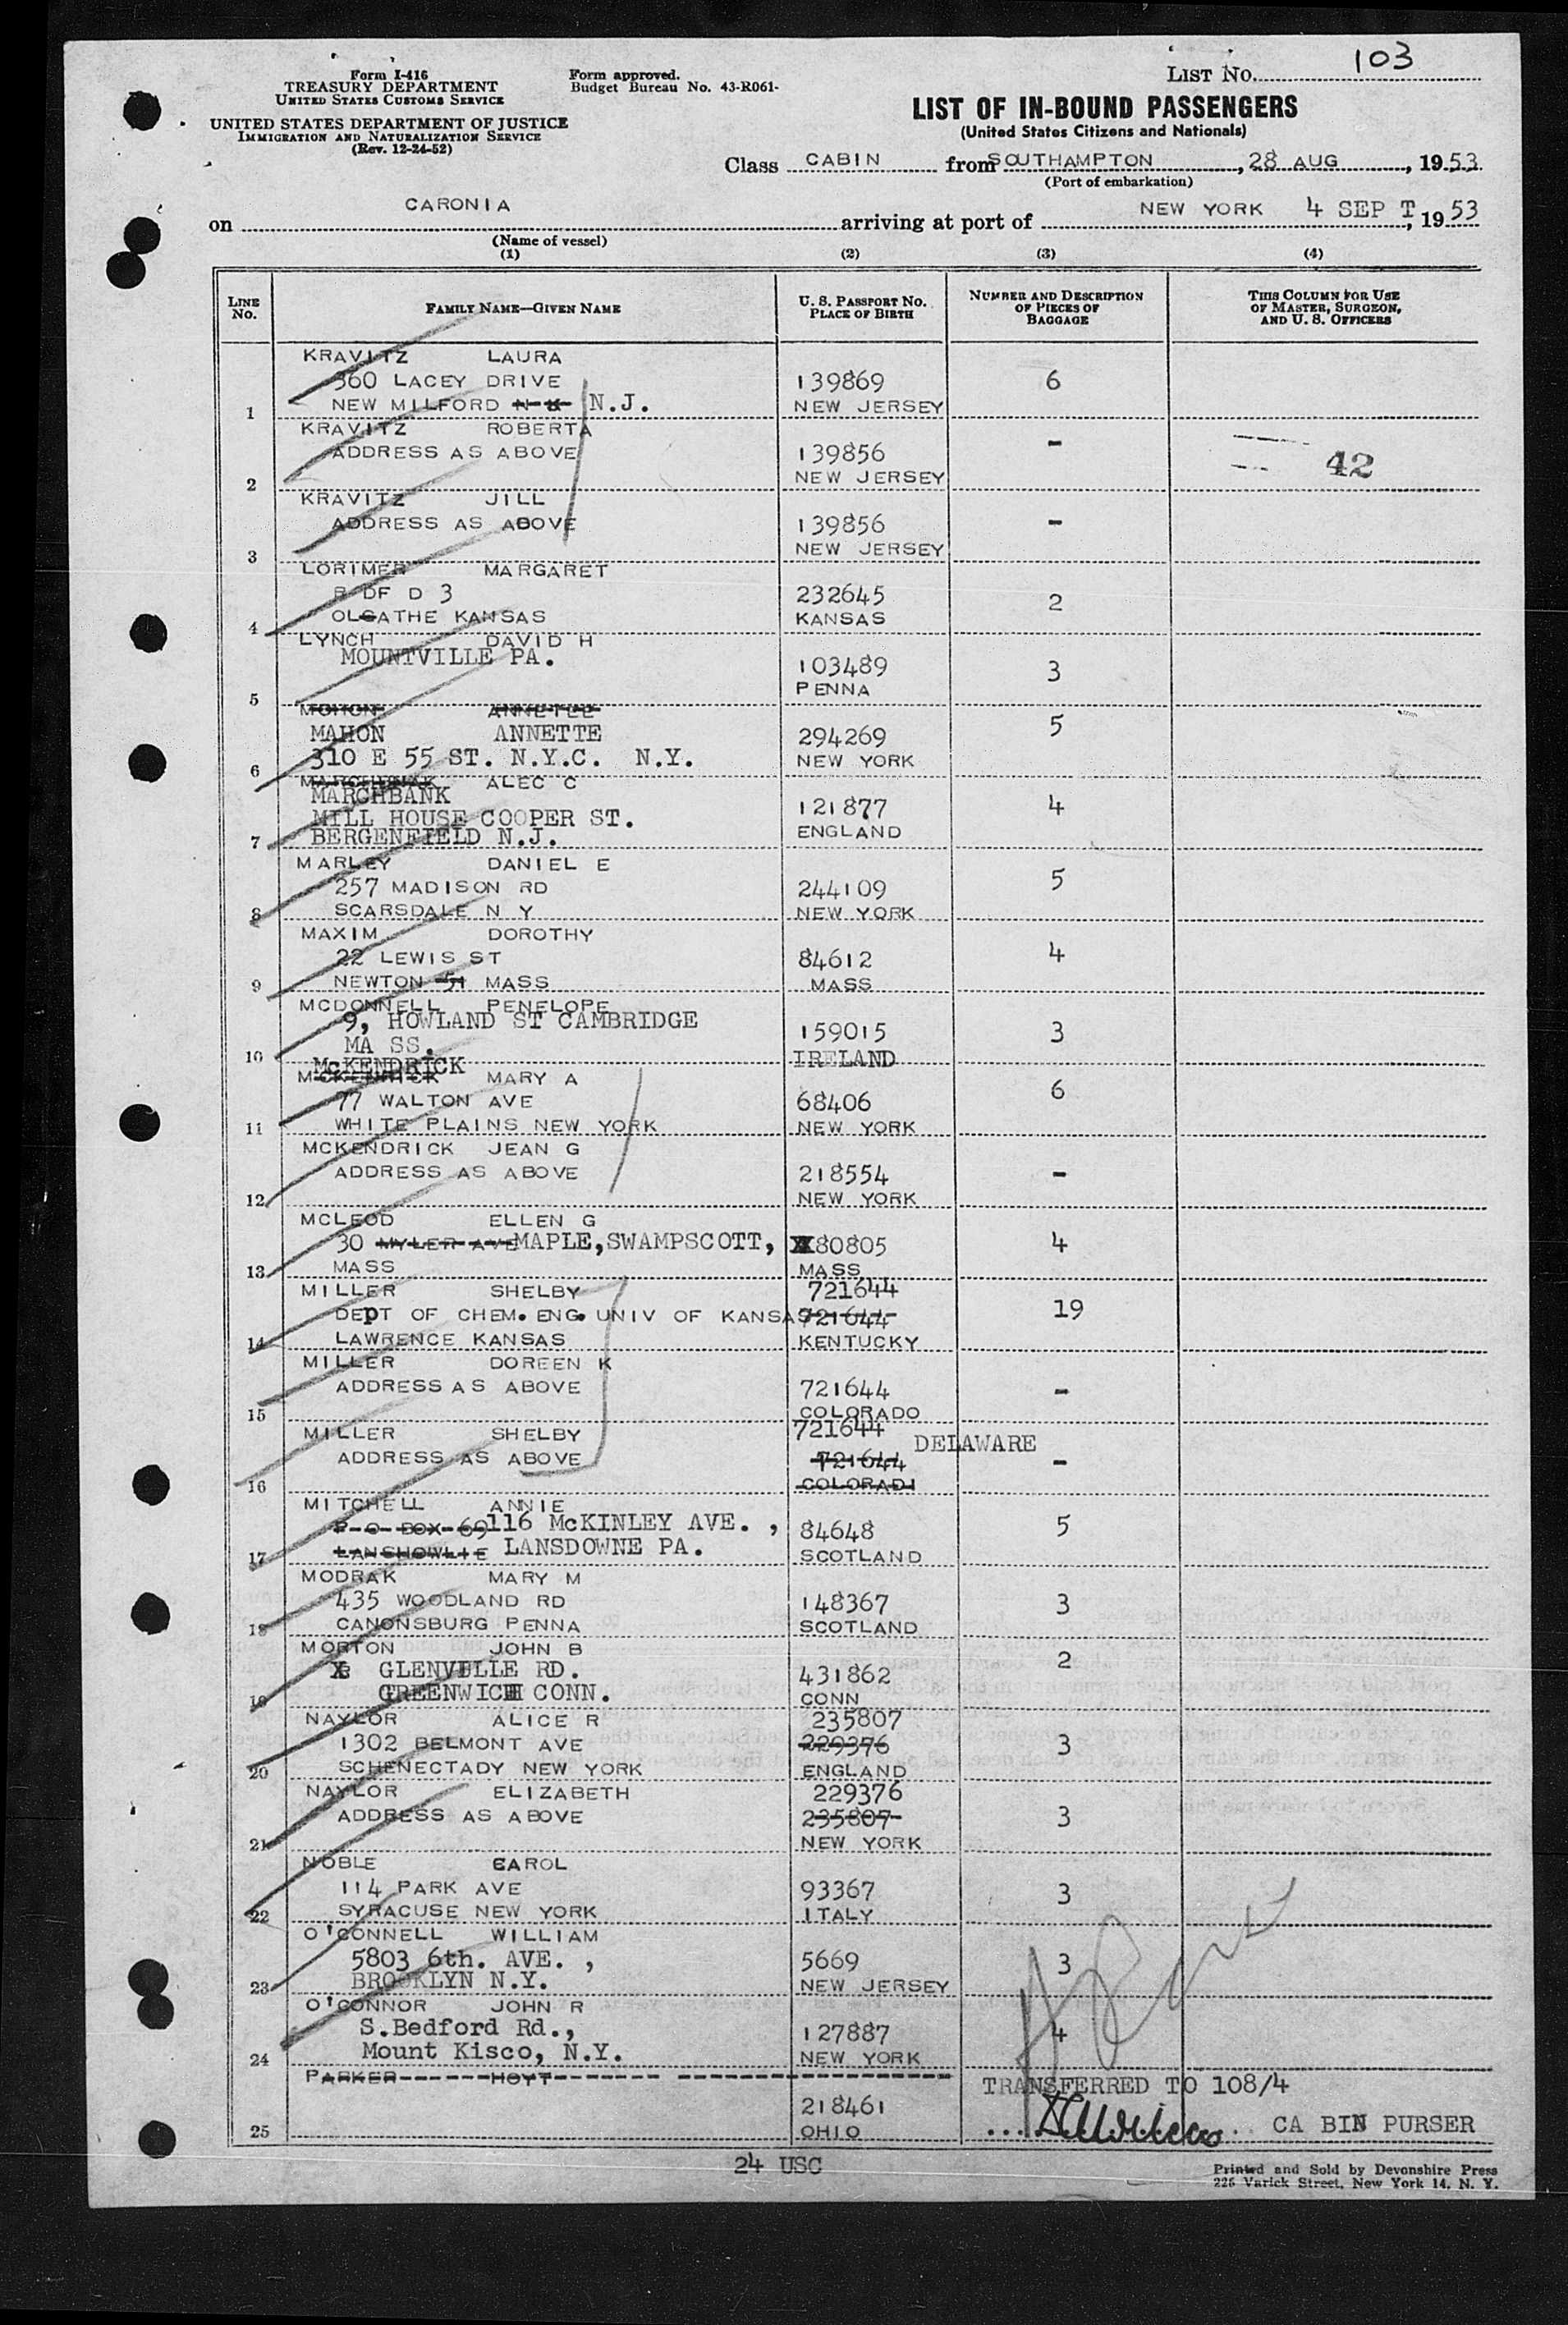 103
Form I-416
TREASURY DEPARTMENT
UNITED STATES CUSTOMS SERVICE
UNITED STATES DEPARTMENT OF JUSTICE
IMMIGRATION AND NATURALIZATION SERVICE
(Rev. 12-24-52)
Form approved.
Budget Bureau No. 43-R061-
LIST NO.
LIST OF IN-BOUND PASSENGERS
(United States Citizens and Nationals)
Class CABIN from SOUTHAMPTON, 28 AUG, 1953
(Port of embarkation)
on CARONIA arriving at port of NEW YORK 4 SEP T, 1953
(Name of vessel)
(1) (2) (3) (4)
LINE No. FAMILY NAME—GIVEN NAME U. S. PASSPORT NO. PLACE OF BIRTH NUMBER AND DESCRIPTION OF PIECES OF BAGGAGE THIS COLUMN FOR USE OF MASTER, SURGEON, AND U. S. OFFICERS
KRAVITZ LAURA
360 LACEY DRIVE 139869 6
1 NEW MILFORD N.J. NEW JERSEY
KRAVITZ ROBERTA
ADDRESS AS ABOVE 139856 - 42
2 NEW JERSEY
KRAVITZ JILL
ADDRESS AS ABOVE 139856 -
3 NEW JERSEY
LORIMER MARGARET
R DF D 3 232645 2
4 OLGATHE KANSAS KANSAS
LYNCH DAVID H
MOUNTVILLE PA. 103489 3
5 PENNA
MOHON ANNETEE
MAHON ANNETTE 294269 5
6 310 E 55 ST. N.Y.C. N.Y. NEW YORK
ALEC C
MARCHBANK
MILL HOUSE COOPER ST. 121877 4
7 BERGENFIELD N.J. ENGLAND
MARLEY DANIEL E
257 MADISON RD 244109 5
8 SCARSDALE N Y NEW YORK
MAXIM DOROTHY
22 LEWIS ST 84612 4
9 NEWTON 51 MASS MASS
MCDONNELL PENELOPE
9, HOWLAND ST CAMBRIDGE 159015 3
10 MA SS. IRELAND
McKENDRICK
MARY A
77 WALTON AVE 68406 6
11 WHITE PLAINS NEW YORK NEW YORK
MCKENDRICK JEAN G
ADDRESS AS ABOVE 218554 -
12 NEW YORK
MCLEOD ELLEN G
30 MYLER AVE MAPLE, SWAMPSCOTT, 80805 4
13 MASS MASS
MILLER SHELBY 721644
DEpT OF CHEM. ENG. UNIV OF KANSAS 721644 19
14 LAWRENCE KANSAS KENTUCKY
MILLER DOREEN K
ADDRESS AS ABOVE 721644 -
15 COLORADO
MILLER SHELBY 721644 DELAWARE
ADDRESS AS ABOVE 721644 -
16 COLORADI
MITCHELL ANNIE
P O BOX 69 116 McKINLEY AVE. , 84648 5
17 LANSHOWLIE LANSDOWNE PA. SCOTLAND
MODRAK MARY M
435 WOODLAND RD 148367 3
18 CANONSBURG PENNA SCOTLAND
MORTON JOHN B
GLENVILLE RD. 431862 2
19 GREENWICH CONN. CONN
NAYLOR ALICE R 235807
1302 BELMONT AVE 229376 3
20 SCHENECTADY NEW YORK ENGLAND
NAYLOR ELIZABETH 229376
ADDRESS AS ABOVE 235807 3
21 NEW YORK
NOBLE CAROL
114 PARK AVE 93367 3
22 SYRACUSE NEW YORK ITALY
O'CONNELL WILLIAM
5803 6th. AVE. , 5669 3
23 BROOKLYN N.Y. NEW JERSEY
O'CONNOR JOHN R
S.Bedford Rd., 127887 4
24 Mount Kisco, N.Y. NEW YORK
PARKER HOYT TRANSFERRED TO 108/4
218461
25 OHIO CA BIN PURSER
24 USC
Printed and Sold by Devonshire Press
226 Varick Street, New York 14, N. Y.